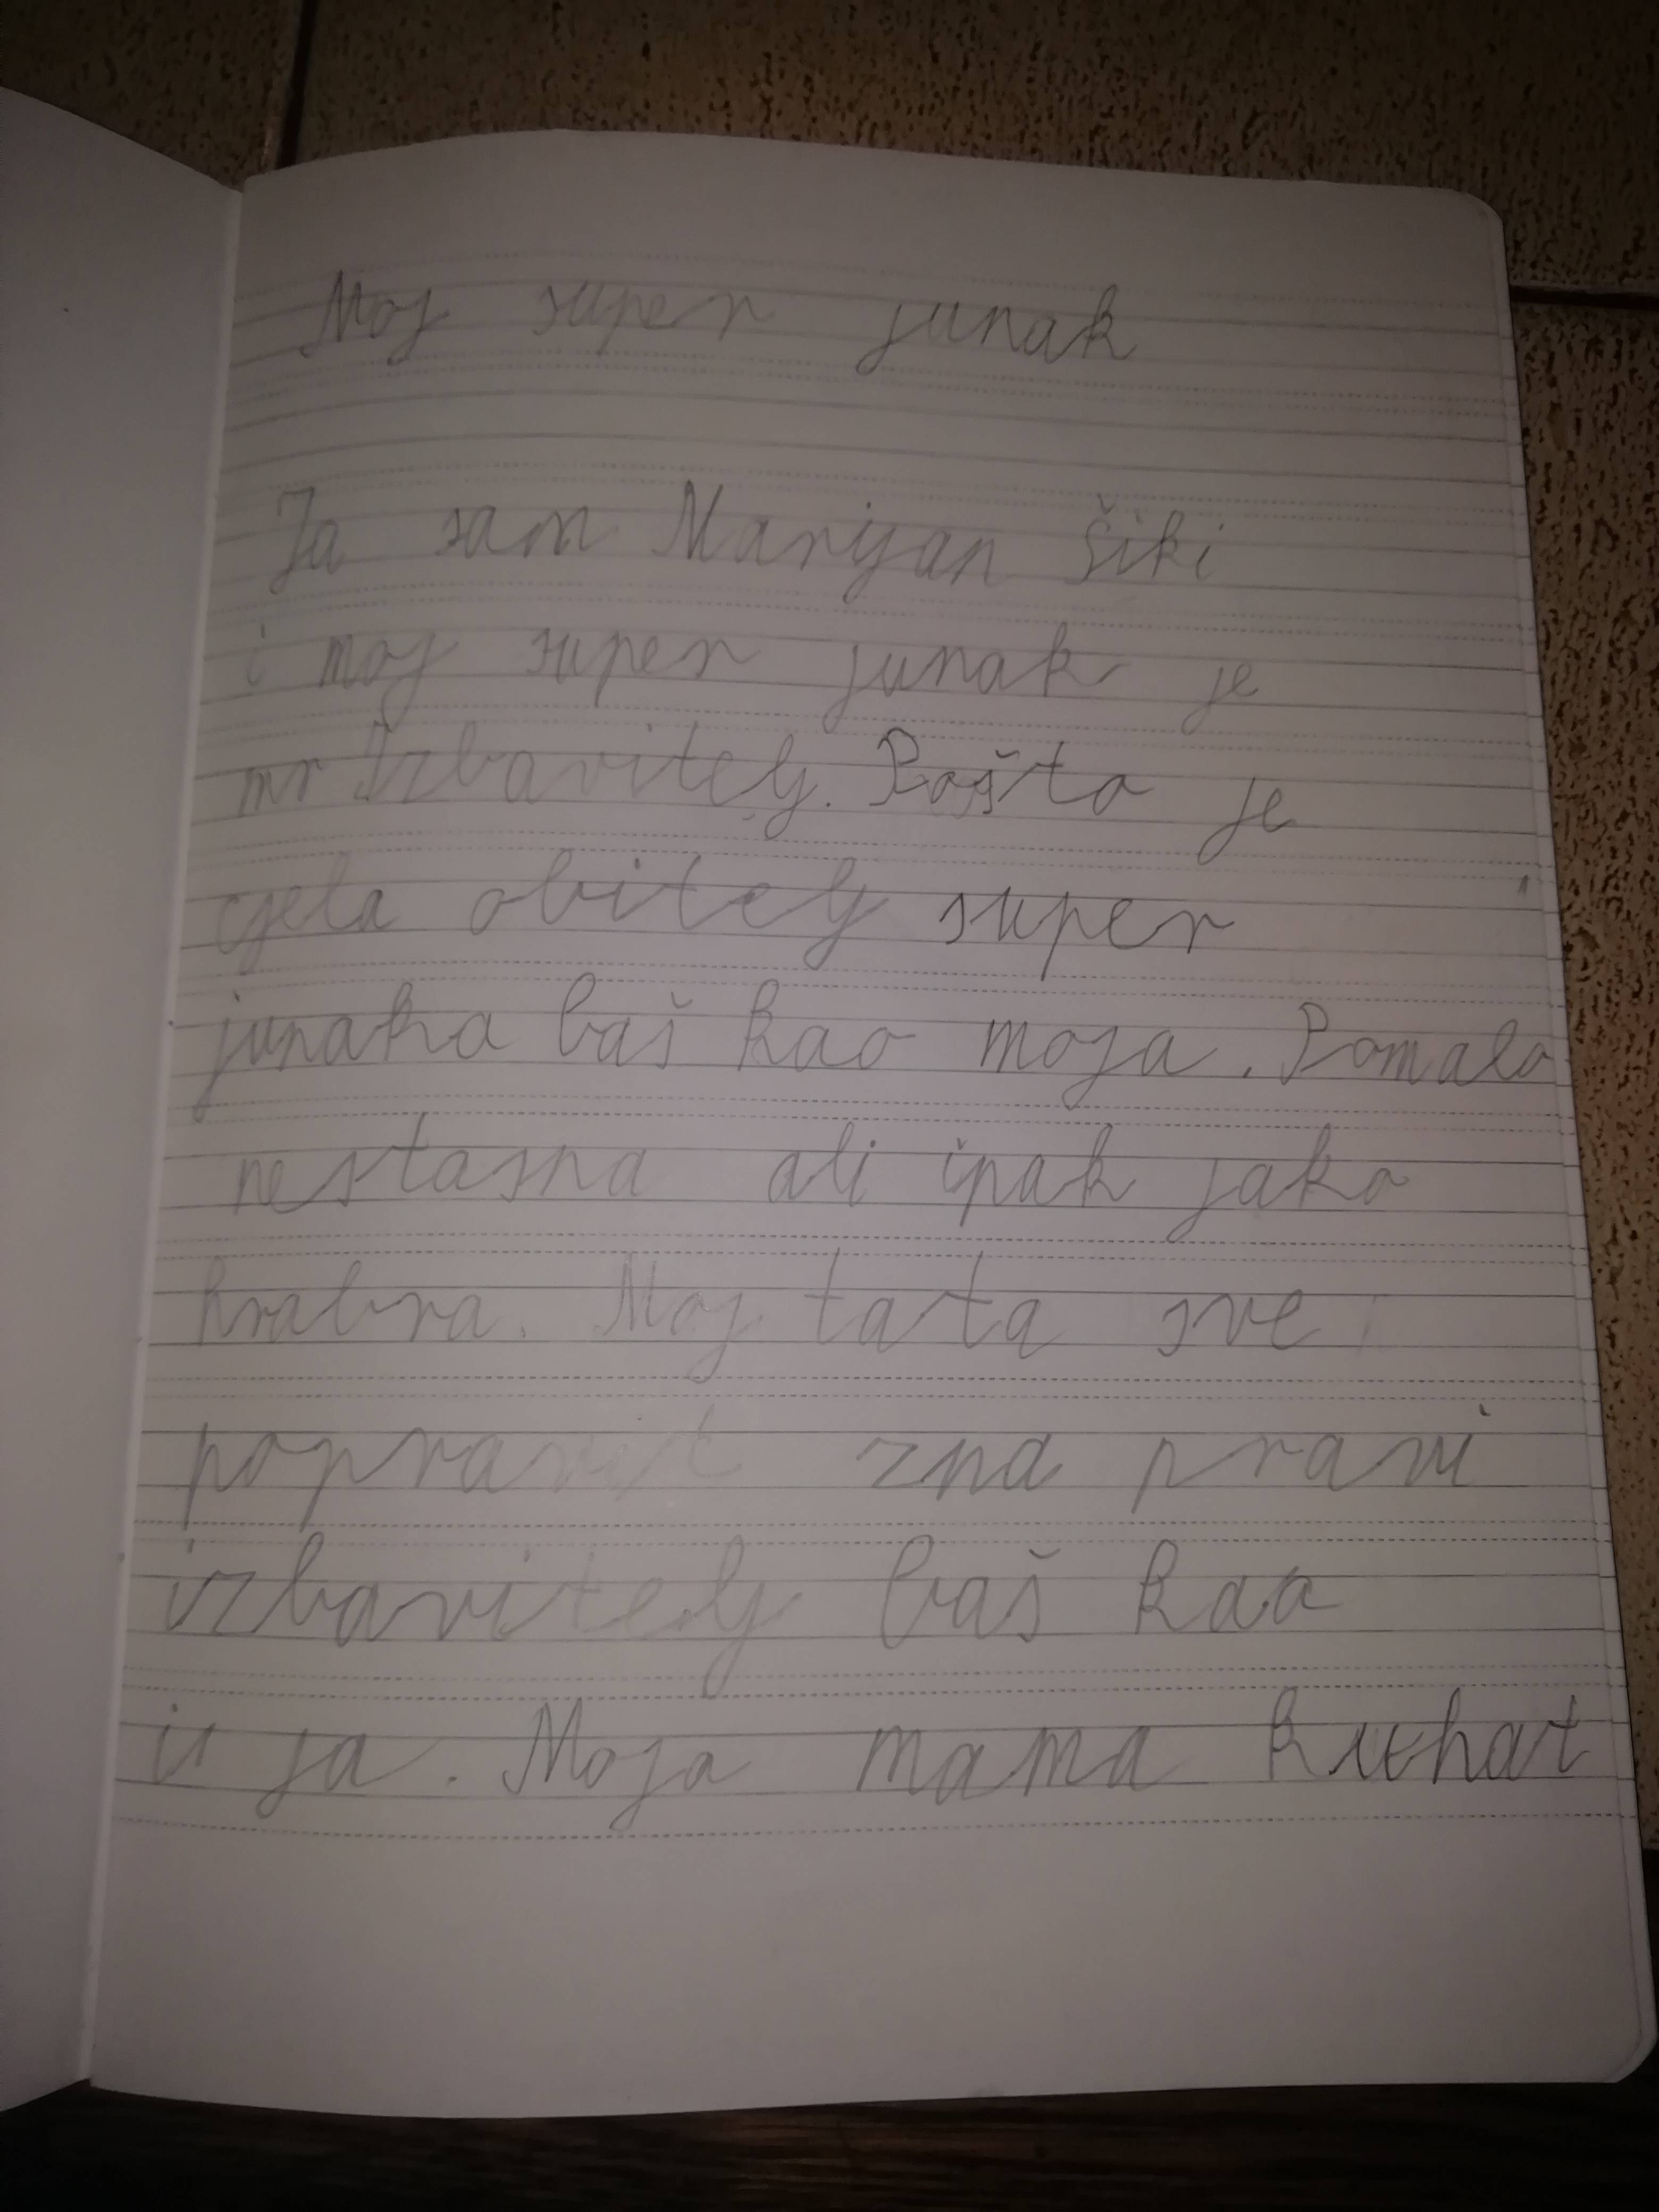 Moj super junak
Ja sam Marijan Šiki
i moj super junak je
mr Izbavitelj. Pošto je
cjela obitelj super
junaka baš kao moja. Pomalo
nestasna ali ipak jako
hrabra. Moj tata sve
popravit zna pravi
izbavitelj baš kao
i ja. Moja mama kuhat